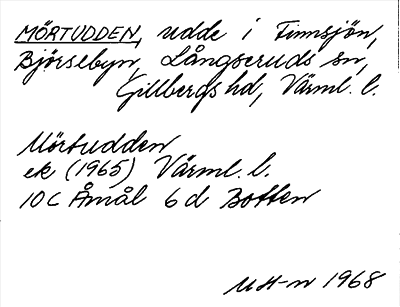 MÖRTUDDEN, udde i Finnsjön,
Björsebyn, Långseruds sn,
Gillbergs hd, Värml. l.
Mörtudden
ek (1965) Värml. l.
10 C Åmål 6 d Botten
MH-n 1968